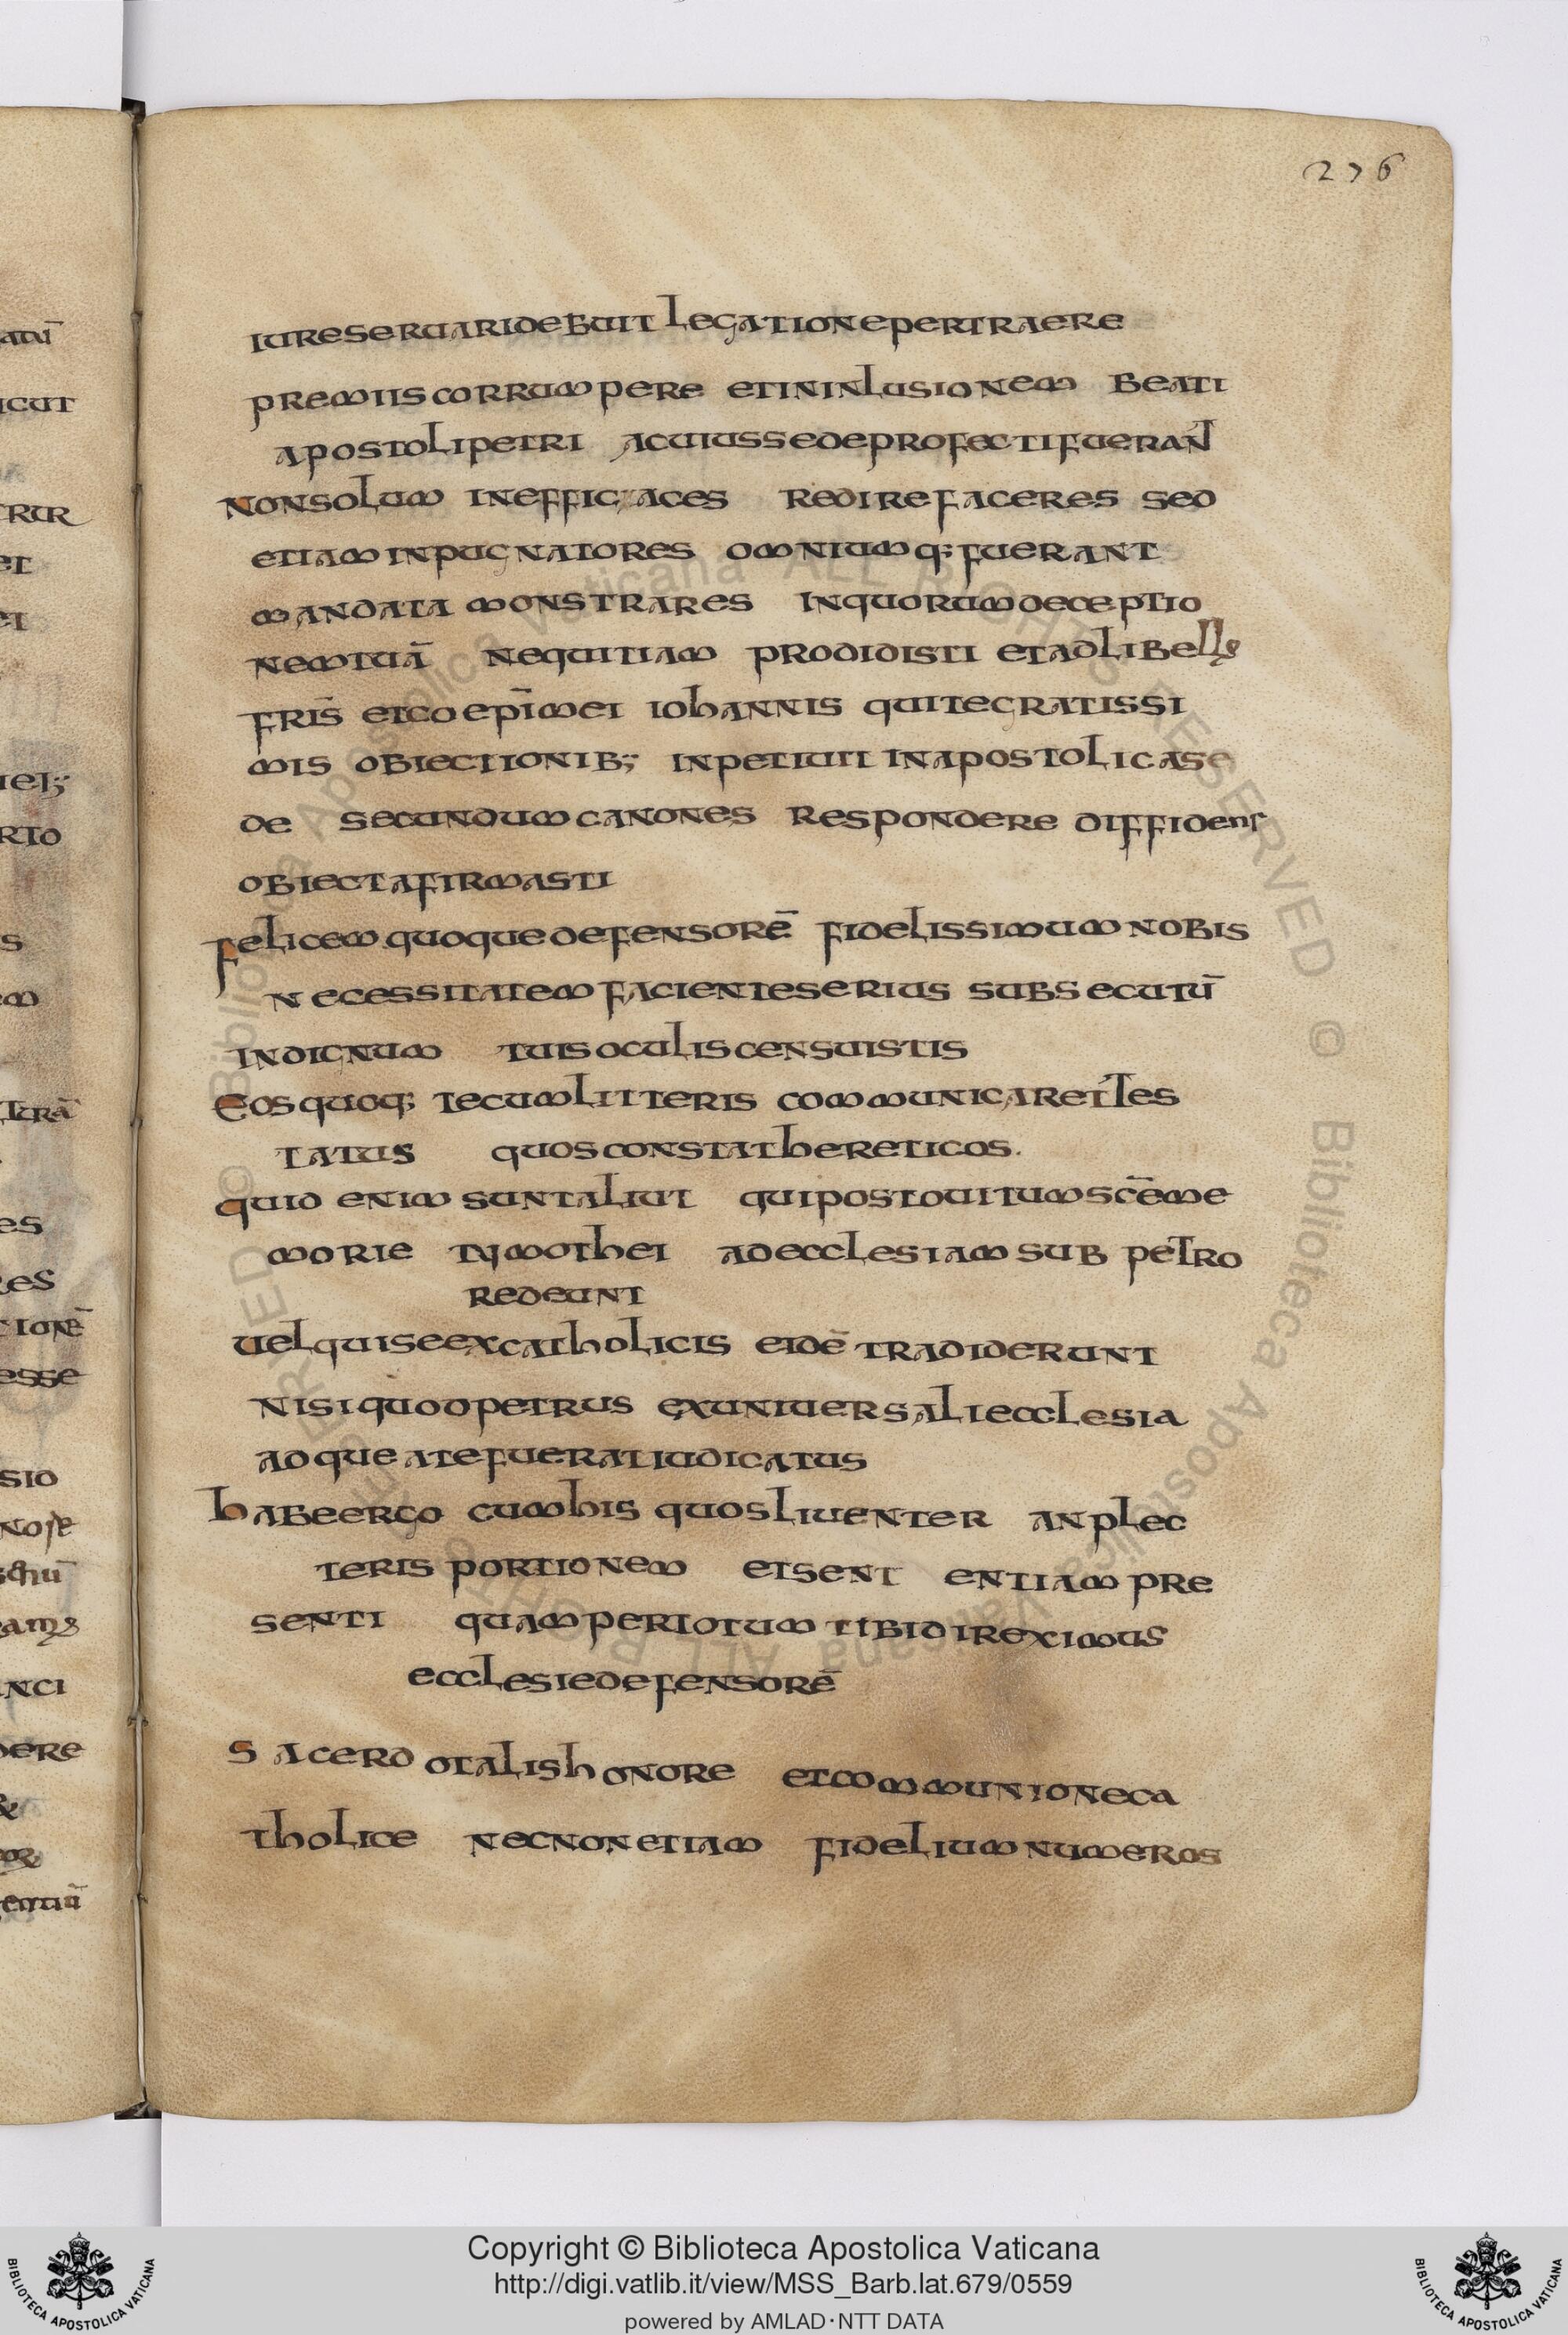 276
iureseruaridebuit legationepertraere
premiiscorrumpere etininlusionem beati
apostolipetri acuiussedeprofectifueran̄
nonsolum inefficaces redirefaceres sed
etiaminpugnatores omniumq;fuerant
mandata monstrares inquorumdeceptio
nemtuā nequitiam prodidisti etadlibell
fris̄ etcoepīmei iohannis quitegratissi
mis obiectionib; inpetiuit inapostolicase
de secundumcanones respondere diffidens
obiectafirmasti
felicemquoquedefensorē fidelissimumnobis
necessitatemfacienteserius subsecutū
indignum tuisoculiscensuistis
eosquoq; tecumlitteris communicareiles
tatus quosconstathereticos.
quid enim suntaliut quipostouitumscēme
morie tymothei adecclesiamsub petro
redeunt
uelquiseexcatholicis eidē tradiderunt
nisiquodpetrus exuniuersaliecclesia
adque atefueratiudicatus
habeergo cumhis quosliuenter anplec
teris portionem etsent entiampre
senti quampertotum tibidireximus
ecclesiedefensorē
sacerdotalishonore etcommunioneca
tholice necnonetiam fidelium numeros
Copyright © Biblioteca Apostolica Vaticana
http://digi.vatlib.it/view/MSS_Barb.lat.679/0559
powered by AMLAD·NTT DATA